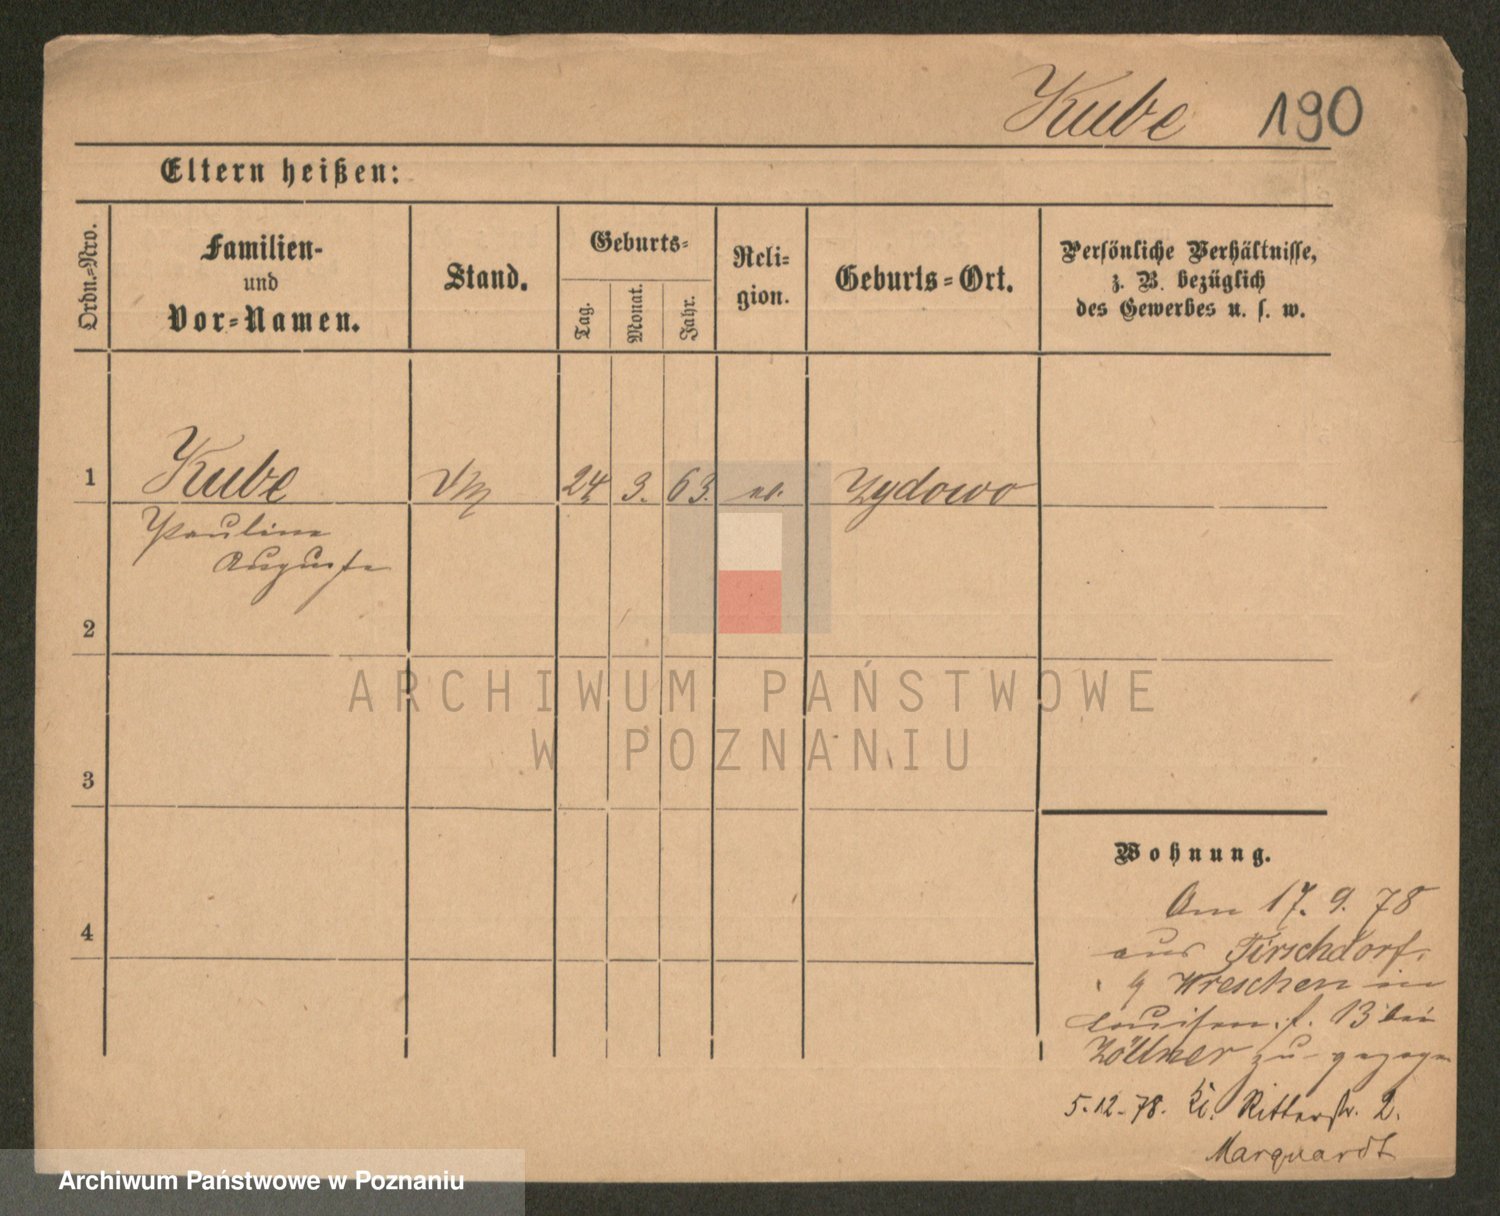 Kube 190
Eltern heißen:
Ordn.=Nro.
Familien-
und
Vor=Namen.
Stand.
Geburts=
Tag.
Monat.
Jahr.
Reli=
gion.
Geburts=Ort.
Persönliche Verhältnisse,
z. B. bezüglich
des Gewerbes u. s. w.
1 Kube 24 3. 63. ev. Zydowo
Pauline
Auguste
2
3
4
Wohnung.
Am 17. 9. 78
aus Firschdorf.
Wreschen in
Louisen. s. 13 bei
Zöllner zu- gezogen
5.12-78. Kl. Ritterstr. 2.
Marquardt
ARCHIWUM PAŃSTWOWE
W POZNANIU
Archiwum Państwowe w Poznaniu